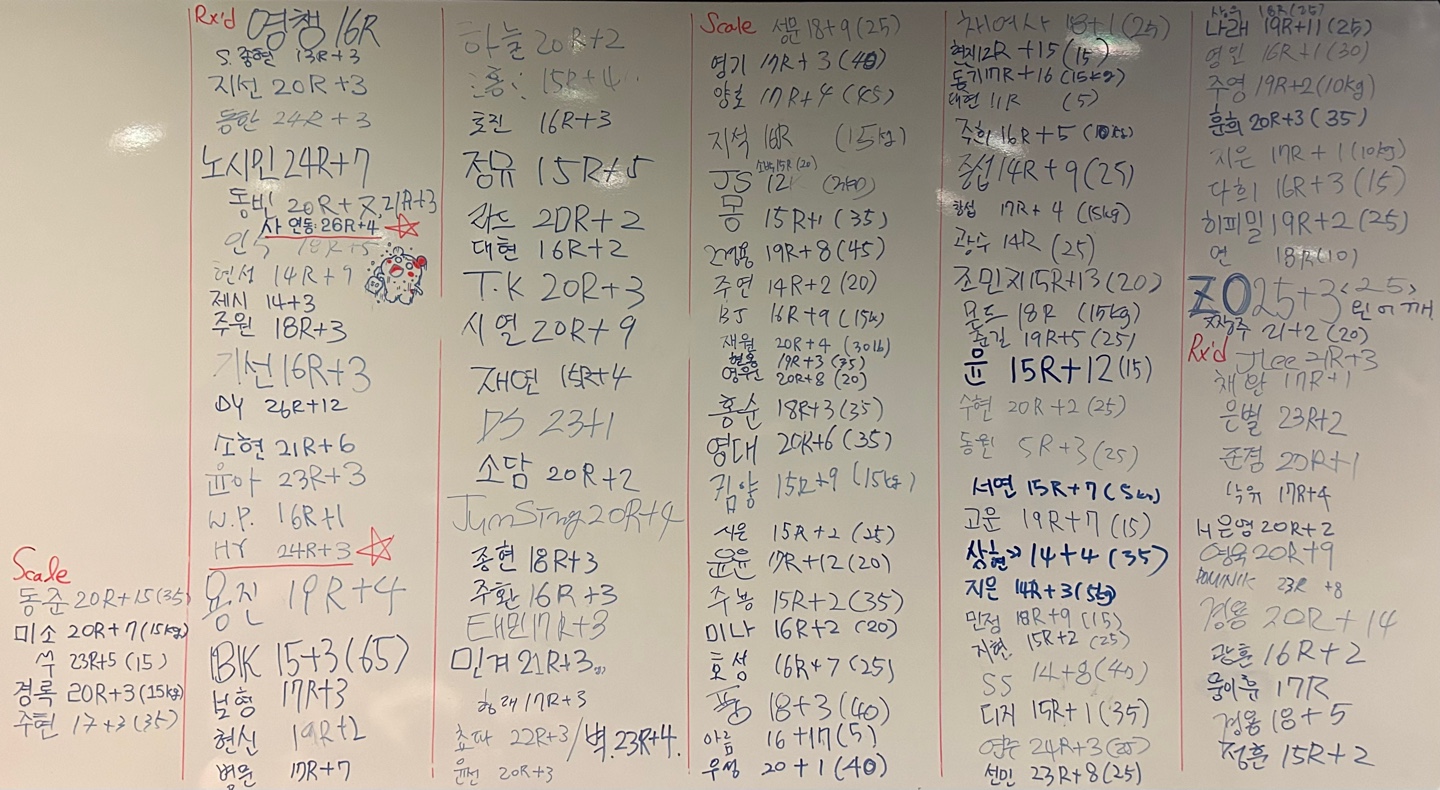 Scale
동준 20R+15(35)
미소 20R+7(15kg)
쑥 23R+5(15)
경록 20R+3(15kg)
주현 17+3(35)
Rx'd
영챙 16R
S.종혈 13R+3
지선 20R+3
동한 24R+3
노시민 24R+7
동빈 20R+7, 21R+3
사 연동: 26R+4
인숙 18R+5
현성 14R+9
제시 14+3
주원 18R+3
기선 16R+3
DY 26R+12
소현 21R+6
윤아 23R+3
W.P. 16R+1
HY 24R+3
용진 19R+4
BK 15+3(65)
보형 17R+3
현신 19R+2
범문 17R+7
하늘 20R+2
홍 15R+4
효진 16R+3
정유 15R+5
라드 20R+2
대현 16R+2
T.K 20R+3
시열 20R+9
재연 15R+4
DS 23+1
소담 20R+2
JunSing 20R+4
종현 18R+3
주환 16R+3
태민 17R+3
민겨 21R+3
형래 17R+3
효따 22R+3/벽.23R+4.
윤선 20R+3
Scale
성문 18+9(25)
영기 17R+3(40)
양호 17R+4(45)
지석 16R (15kg)
15R(20)
JS 12
몽 15R+1(35)
안영용 19R+8(45)
주연 14R+2(20)
BJ 16R+9(15kg)
재원 20R+4(30lb)
현용 19R+3(35)
영우 20R+8(20)
홍순 18R+3(35)
영대 20R+6(35)
김양 15R+9(15kg)
시은 15R+2(25)
윤윤 17R+12(20)
주봉 15R+2(35)
미나 16R+2(20)
호성 16R+7(25)
퐁 18+3(40)
아름 16+17(5)
우성 20+1(40)
채여사 18+1(25)
현지 12R+15(15)
동기 17R+16(15kg)
태현 11R (5)
주희 16R+5(10kg)
종섭 14R+9(25)
항섭 17R+4(15kg)
광수 14R(25)
조민지 15R+13(20)
모드 18R(15kg)
준길 19R+5(25)
윤 15R+12(15)
수현 20R+2(25)
동원 5R+3(25)
서연 15R+7(5kg)
고운 19R+7(15)
상현 14+4(35)
지은 14R+3(5kg)
민정 18R+9(15)
지현 15R+2(25)
SS 14+8(40)
디지 15R+1(35)
연주 24R+3(35)
선민 23R+8(25)
상유 18R(25)
나래 19R+11(25)
영인 16R+1(30)
주영 19R+2(10kg)
훈희 20R+3(35)
지은 17R+1(10kg)
다희 16R+3(15)
히피밀 19R+2(25)
연 18R(10)
ZO 25+3(25)
왼어깨
짝주 21+2(20)
Rx'd
JLee 21R+3
채완 17R+1
은별 23R+2
준점 20R+1
낙유 17R+4
H은영 20R+2
영욱 20R+9
DOMINIK 23R+8
경용 20R+14
광훈 16R+2
뭉이쮸 17R
경용 18+5
정훈 15R+2